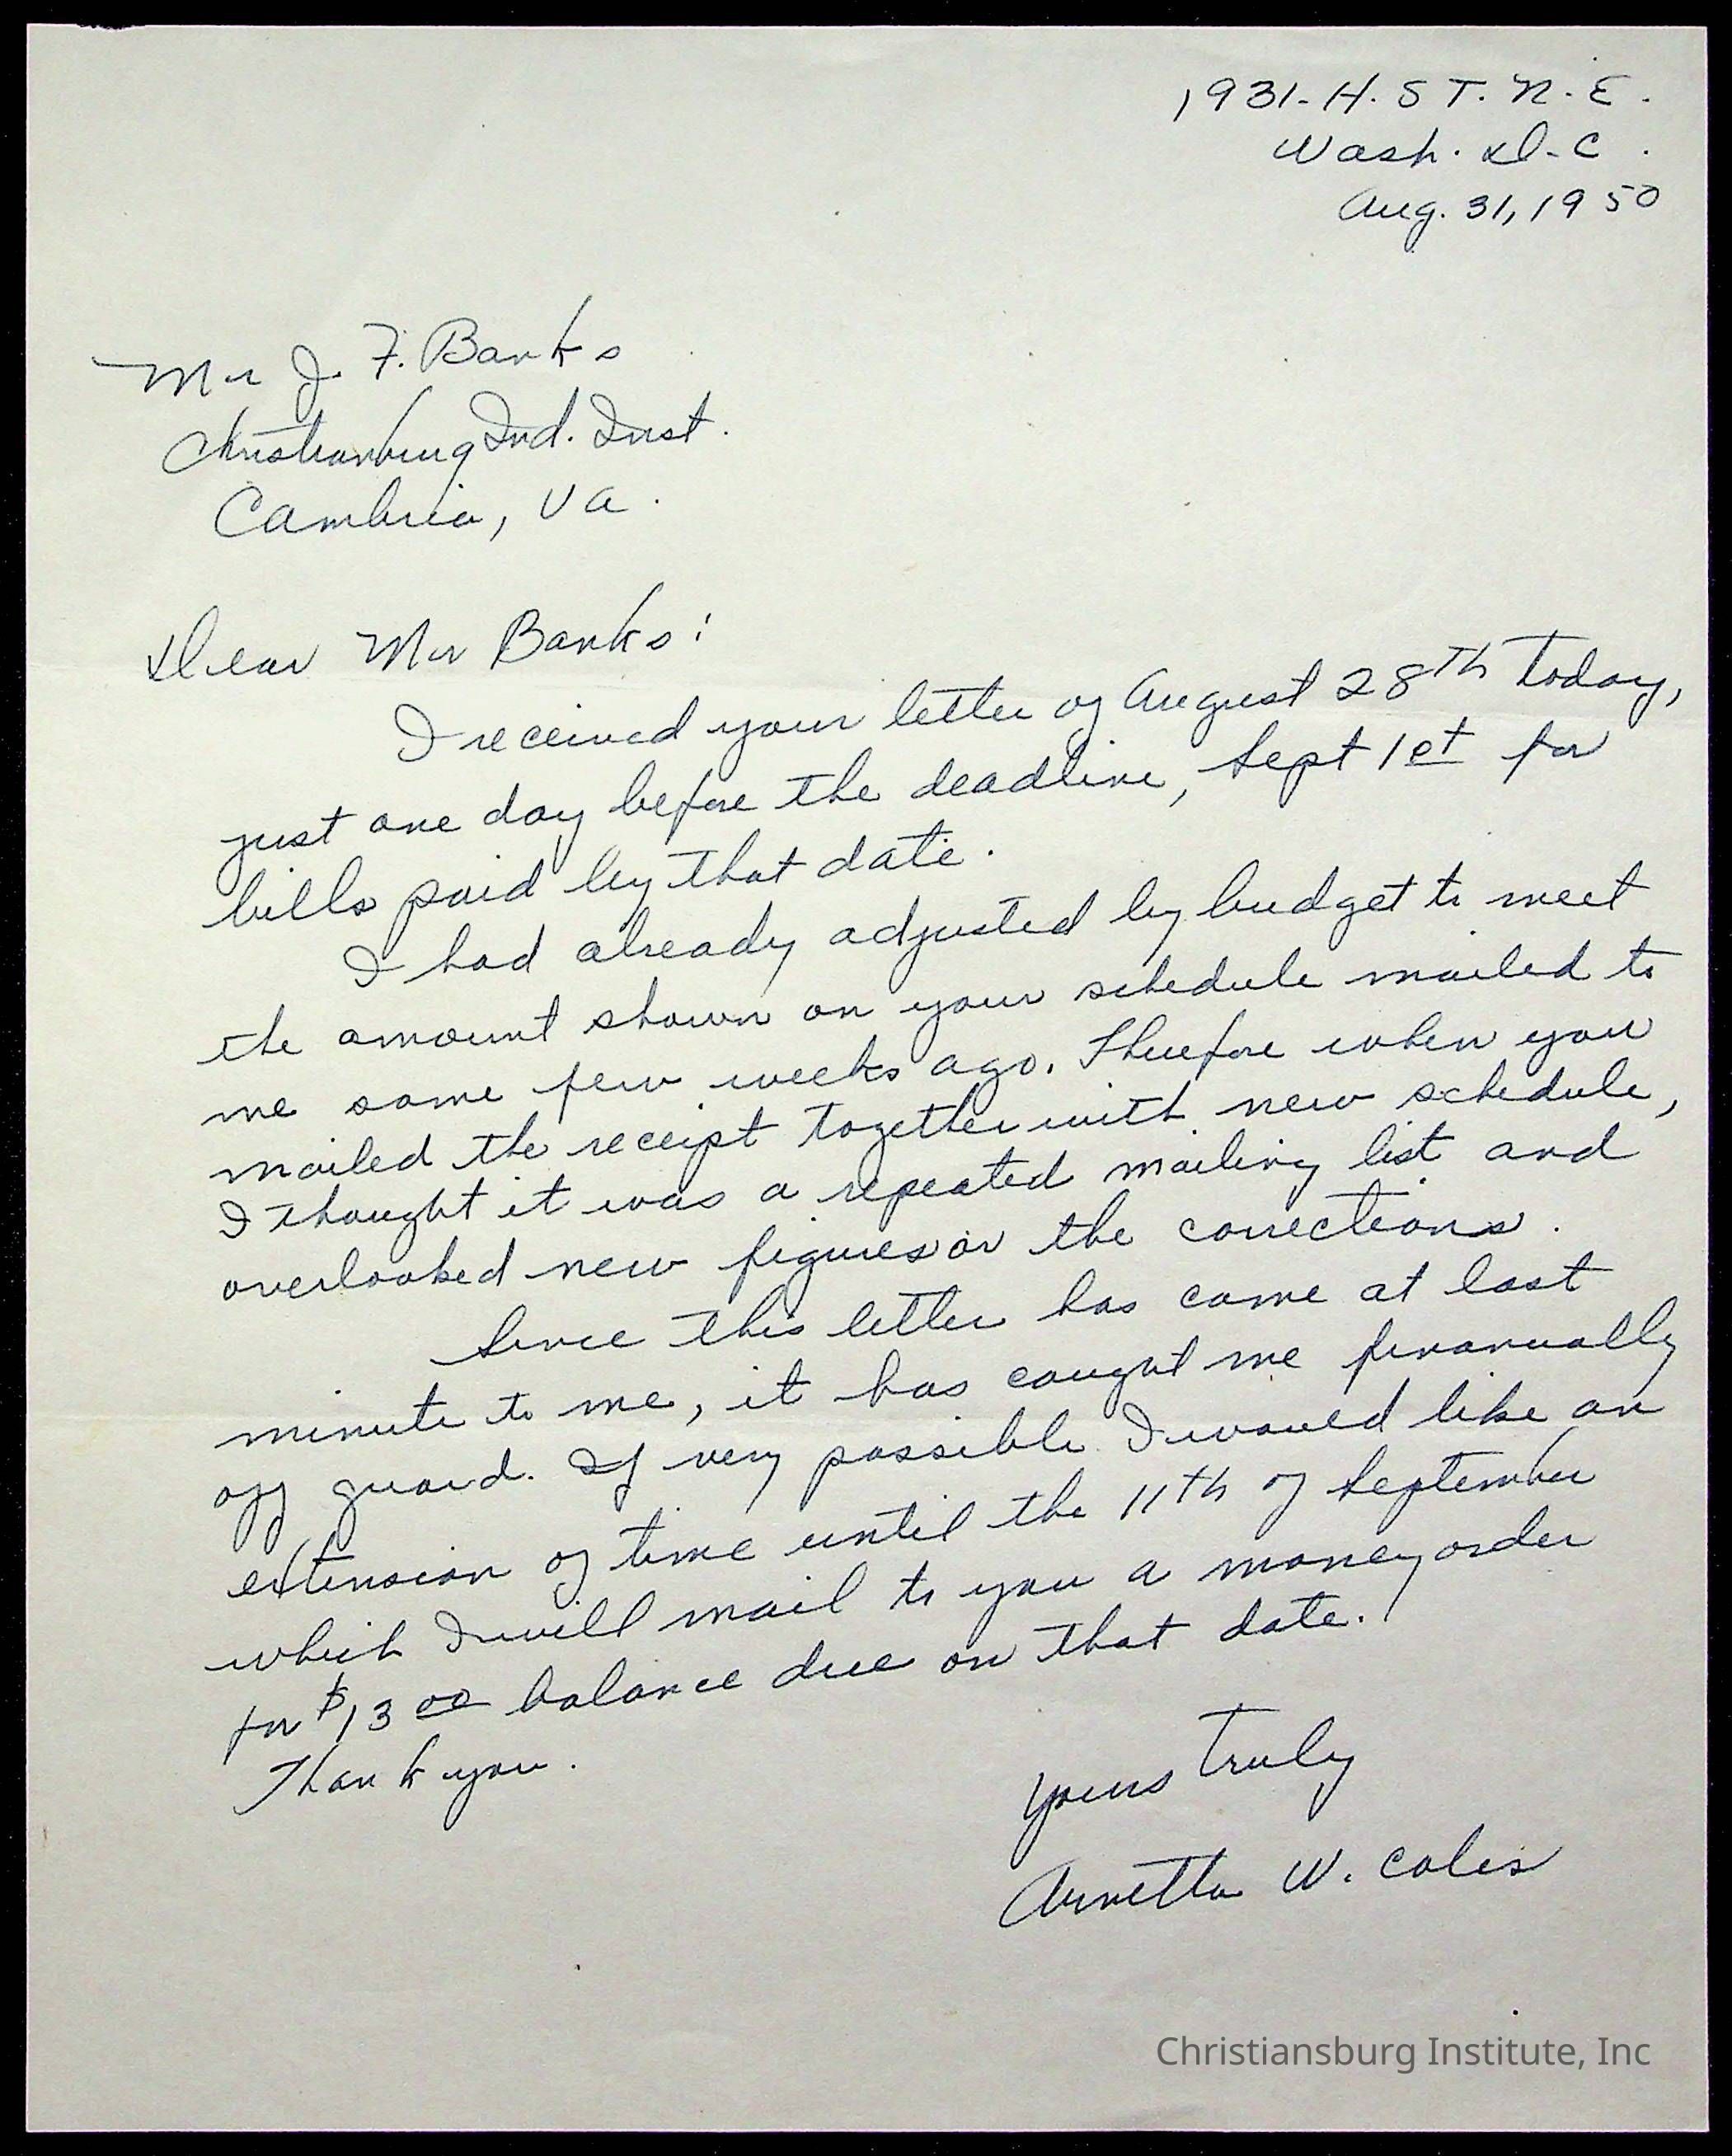 1931-H. ST. N.E.
Wash. D.C.
Aug. 31, 1950
Mr J. F. Banks
Christianburg Ind. Inst.
Cambria, Va.
Dear Mr Banks:
I received your letter of August 28th today,
just one day before the deadline, Sept 1st for
bills paid by that date.
I had already adjusted by budget to meet
the amount shown on your schedule mailed to
me some few weeks ago. Therefore when you
mailed the receipt together with new schedule,
I thought it was a repeated mailing list and
overlooked new figures or the corrections.
Since this letter has come at last
minute to me, it has caught me financially
off guard. If very possible I would like an
extension of time until the 11th of September
which I will mail to you a money order
for $13 00 balance due on that date.
Thank you.
Yours truly
Arnetta W. Coles
Christiansburg Institute, Inc